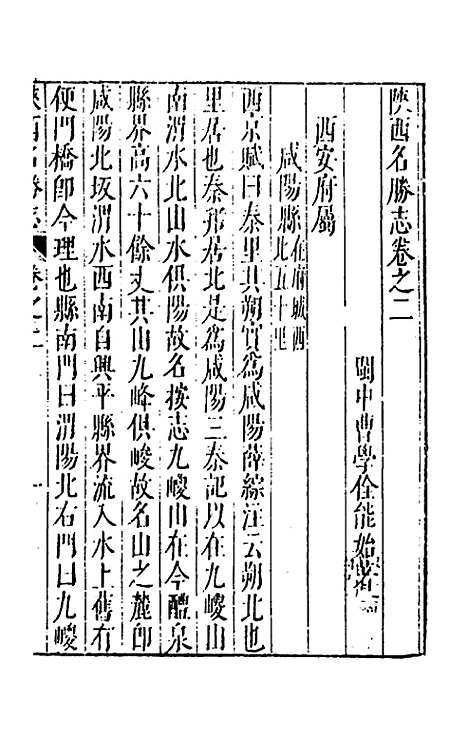 陝西名勝志卷之二
閩中曹學佺能始著
西安府屬
咸陽縣在府城西北五十里
西京賦曰秦里其朔實爲咸陽薛綜注云朔北也
里居也秦孝居北是爲咸陽三秦記以在九嵕山
南渭水北山水俱陽故名按志九嵕山在今醴泉
縣界高六十餘丈其山九峰俱峻故名山之麓卽
咸陽北坂渭水西南自興平縣界流入水上舊有
便門橋卽今理也縣南門曰渭陽北右門曰九嵕
陝西名勝志 卷之二 一